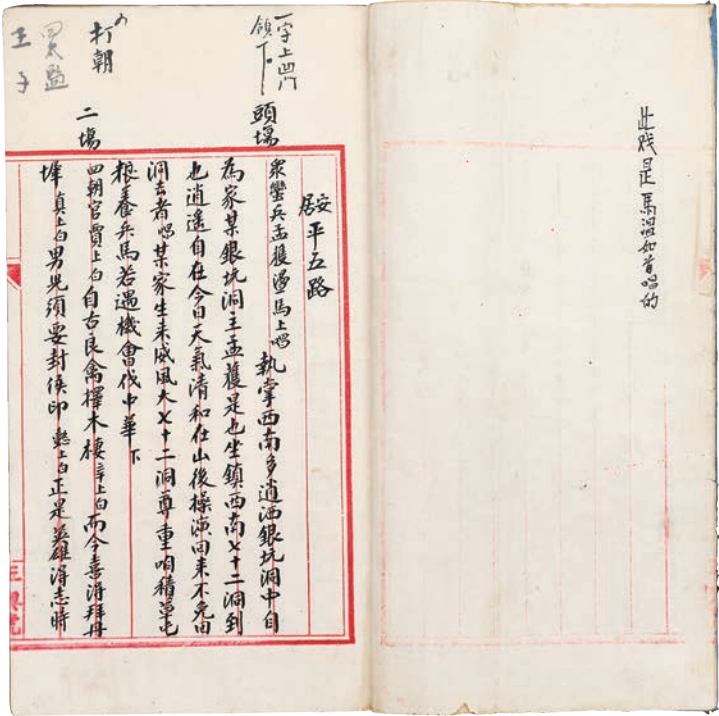 此戏是馬温如首唱的
安居平五路
頭場
一字上四門
領下
衆蠻兵孟獲邊馬上唱 執掌西南多逍洒銀坑洞中自
為家某銀坑洞主孟獲是也坐鎮西南七十二洞到
也逍遥自在今日天氣清和在山後操演回来不免回
洞去者唱某家生来威風大七十二洞尊重咱積草屯
粮養兵馬若遇機會伐中華下
二場
内打朝
四太監
王子
四朝官賈上白自古良禽擇木棲辛上白而今喜得拜丹
墀真上白男兒須要封侯印懿上白正是英雄得志時